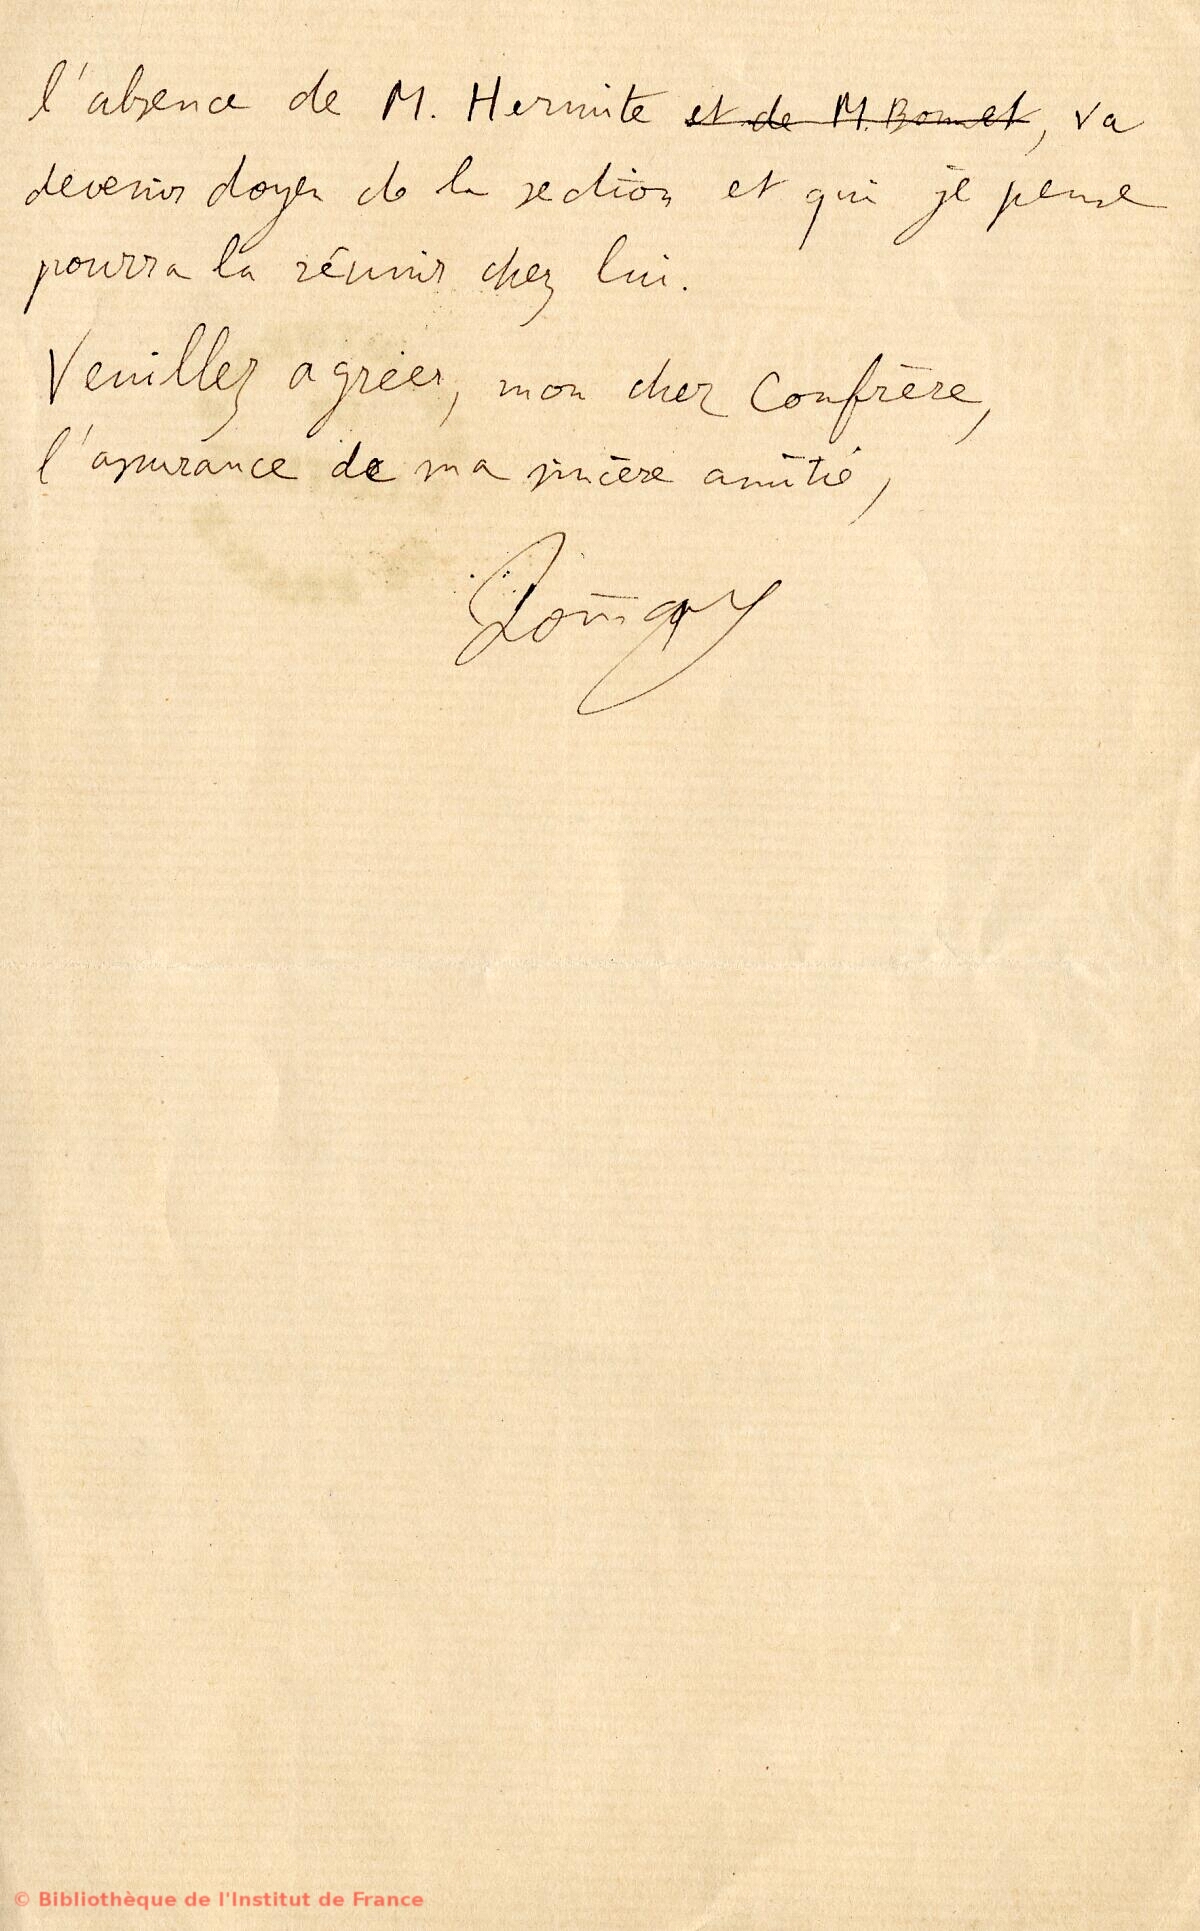 l'absence de M. Hermite et de M. Bonnet, va
devenir doyen de la section et qui je pense
pourra la réunir chez lui.
Veuillez agréer, mon cher Confrère,
l'assurance de ma sincère amitié,
© Bibliothèque de l'Institut de France